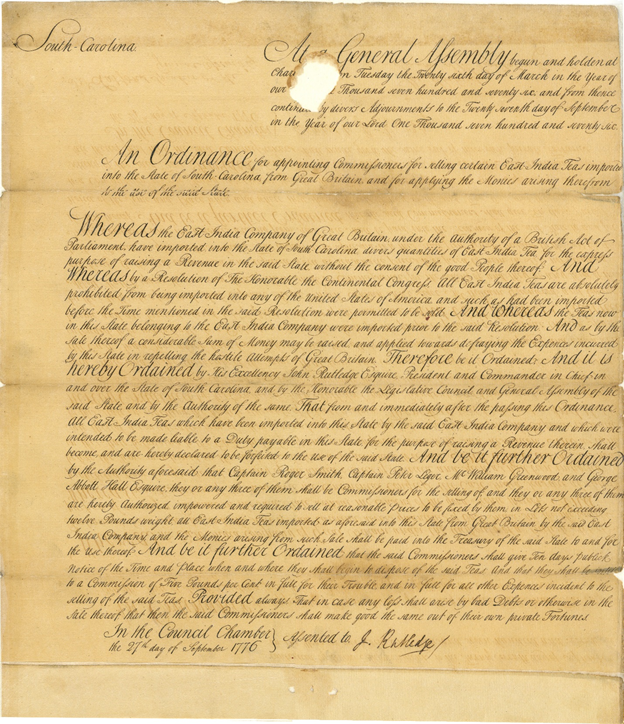 South-Carolina.
At a General Assembly begun and holden at
Char n Tuesday the Twenty sixth day of March in the Year of
our Thousand seven hundred and seventy six, and from thence
continued by divers Adjournments to the Twenty seventh day of September
in the Year of our Lord One Thousand seven hundred and seventy six.
An Ordinance for appointing Commissioners for selling certain East India Teas imported
into the State of South Carolina, from Great Britain, and for applying the Monies arising therefrom
to the use of the said State.
Whereas the East India Company of Great Britain, under the Authority of a British Act of
Parliament, have imported into the State of South Carolina divers quantities of East India Tea for the express
purpose of raising a Revenue in the said State without the consent of the good People thereof. And
Whereas by a Resolution of The Honorable the Continental Congress All East India Teas are absolutely
prohibited from being imported into any of the United States of America and such as had been imported
before the Time mentioned in the said Resolution were permitted to be sold. And Whereas the Teas now
in this State belonging to the East India Company were imported prior to the said Resolution. And as by the
Sale thereof a considerable Sum of Money may be raised and applied towards defraying the Expences incurred
by this State in repelling the hostile Attempts of Great Britain. Therefore be it Ordained; And it is
hereby Ordained by His Excellency John Rutledge Esquire, President and Commander in Chief in
and over the State of South Carolina, and by the Honorable the Legislative Council and General Assembly of the
said State, and by the Authority of the same That from and immediately after the passing this Ordinance,
All East India Teas which have been imported into this State by the said East India Company and which were
intended to be made liable to a Duty payable in this State for the purpose of raising a Revenue therein, shall
become, and are hereby declared to be forfeited to the Use of the said State. And be it further Ordained
by the Authority aforesaid, that Captain Roger Smith, Captain Peter Leger, Mr William Greenwood, and George
Abbott Hall Esquire, they or any three of them shall be Commissioners for the Selling of and they or any three of them
are hereby Authorized, impowered and required to sell at reasonable prices to be fixed by them in Lots not exceeding
twelve Pounds weight all East India Teas imported as aforesaid into this State from Great Britain by the said East
India Company and the Monies arising from such Sale shall be paid into the Treasury of the said State to and for
the Use thereof. And be it further Ordained that the said Commissioners shall give Ten days publick
notice of the Time and place when and where they shall begin to dispose of the said Teas And that they shall be
to a Commission of Five Pounds per Cent in full for their Trouble, and in full for all other Expences incident to the
selling of the said Teas. Provided always That in case any loss shall arise by bad Debts or otherwise in the
Sale thereof that then the said Commissioners shall make good the same out of their own private Fortunes
In the Council Chamber } Assented to J. Rutledge
the 27th day of September 1776